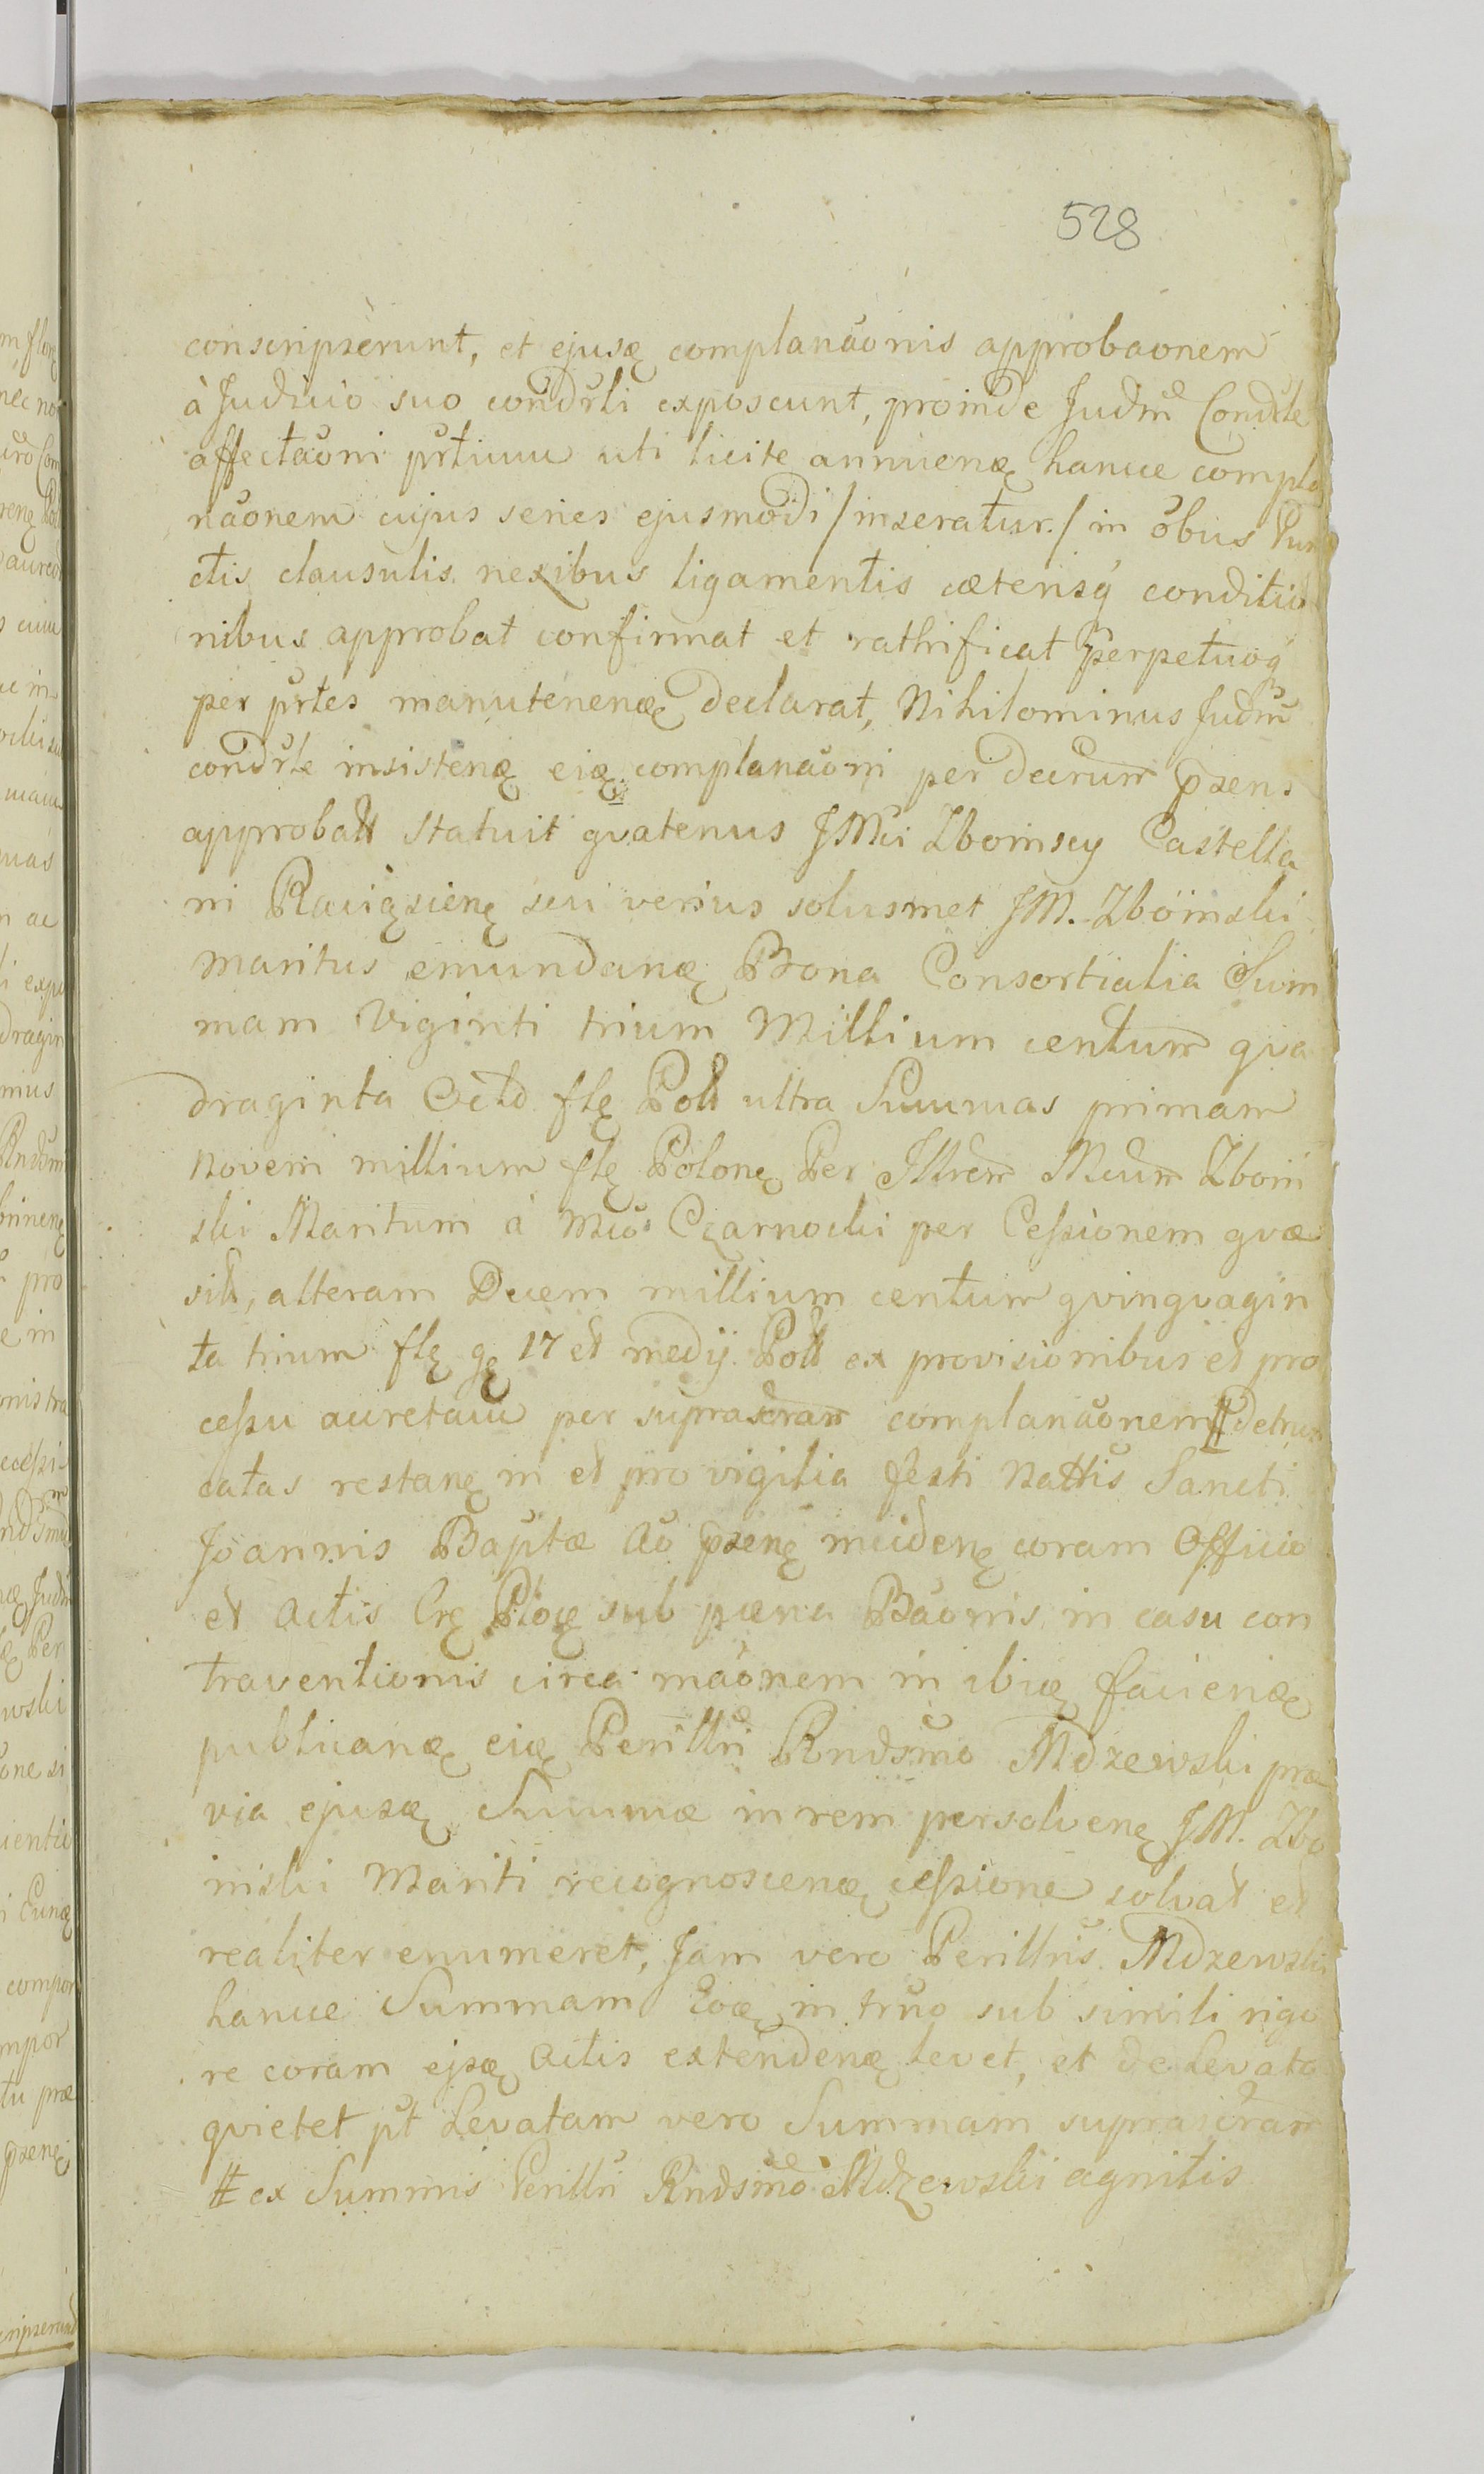 528
conscripserunt, et ejusq complanaonis approbaonem
à Judicio suo condrli exposcunt, proinde Judm Condrle
affectaoni prtium uti licite annuenq hancce compla
naonem cujus series ejusmodi / inseratur / in obus Pun
ctis clausulis nexibus ligamentis cæterisq conditio
nibus approbat confirmat et rathificat Perpetuoq
per prtes manutenenq declarat, Nihilominus Judm
condrle insistenq eiq complanaoni per decrum pzens
approbatt statuit qvatenus JMci Zboinscy Castella
ni Raciązienę seu verius solusmet JM. Zboinski
Maritus emundanq Bona Consortialia Sum
mam Viginti trium Millium centum qva
draginta Octo flę Poll ultra Summas primam
Novem millium flę Polonę Per Illrem Mcum Zboin
ski Maritum à Mco Czarnocki per Cessionem qvæ
sitt, alteram Decem millium centum qvinqvagin
ta trium flę gę 17 et medij Poll ex provisionibus et pro
cessu
per suprascram complanaonem # detrun
catas restanę in et pro vigilia festi Nattis Sancti
Joannis Baptæ Ao pzenę incidenę coram Officio
et Actis Crę Płocę sub pæna Baonis in casu con
traventionis circa maonem in ibiq facienq
publicanq eiq Perillri Rndsmo Mdzewski præ
via ejusq Summæ in rem persolvenę JM. Zbo
inski Mariti recognoscenq cessione solvat et
realiter enumeret, Jam vero Perillris Mdzewski
hancce Summam Eoq in truo sub simili rigo
re coram ejsq Actis extendenq levet, et de Levata
qvietet pt Levatam vero Summam suprascram
# ex Summis Perillri Rndsmo Mdzewski agnitis